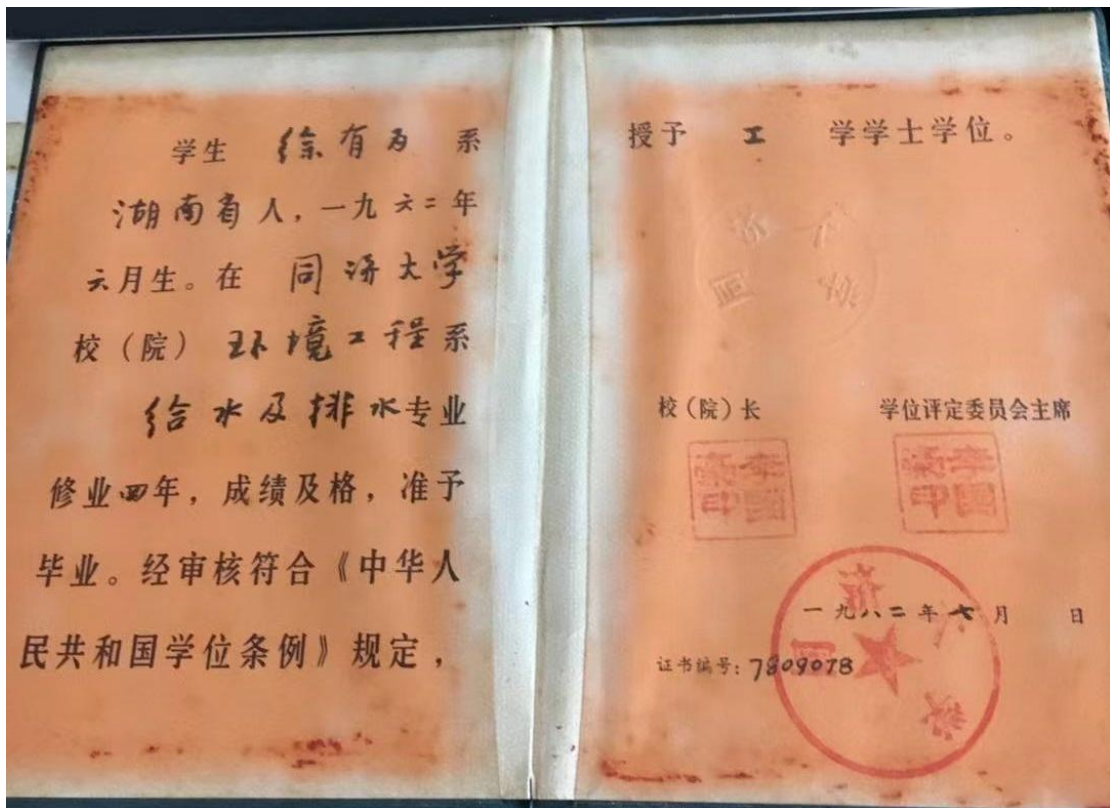 学生 徐有为 系
湖南省人，一九六二年
六月生。在 同济大学
校（院） 环境工程系
给水及排水专业
修业四年，成绩及格，准予
毕业。经审核符合《中华人
民共和国学位条例》规定，
授予 工 学学士学位。
同济大学
校（院）长 学位评定委员会主席
一九八二年七月 日
证书编号：7809078
同济大学